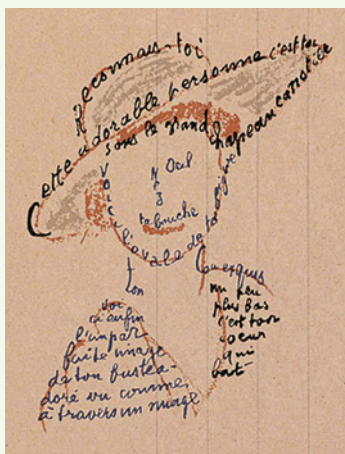 Reconnais-toi
Cette adorable personne c'est toi
sous le grand chapeau canotier
Oeil
ta bouche
Voici l'ovale de ta figure
Ton
Cou exquis
voi
ci enfin
l'impar
faite image
de ton buste a-
doré vu comme
à travers un nuage
un peu
plus bas
c'est ton
coeur
qui
bat